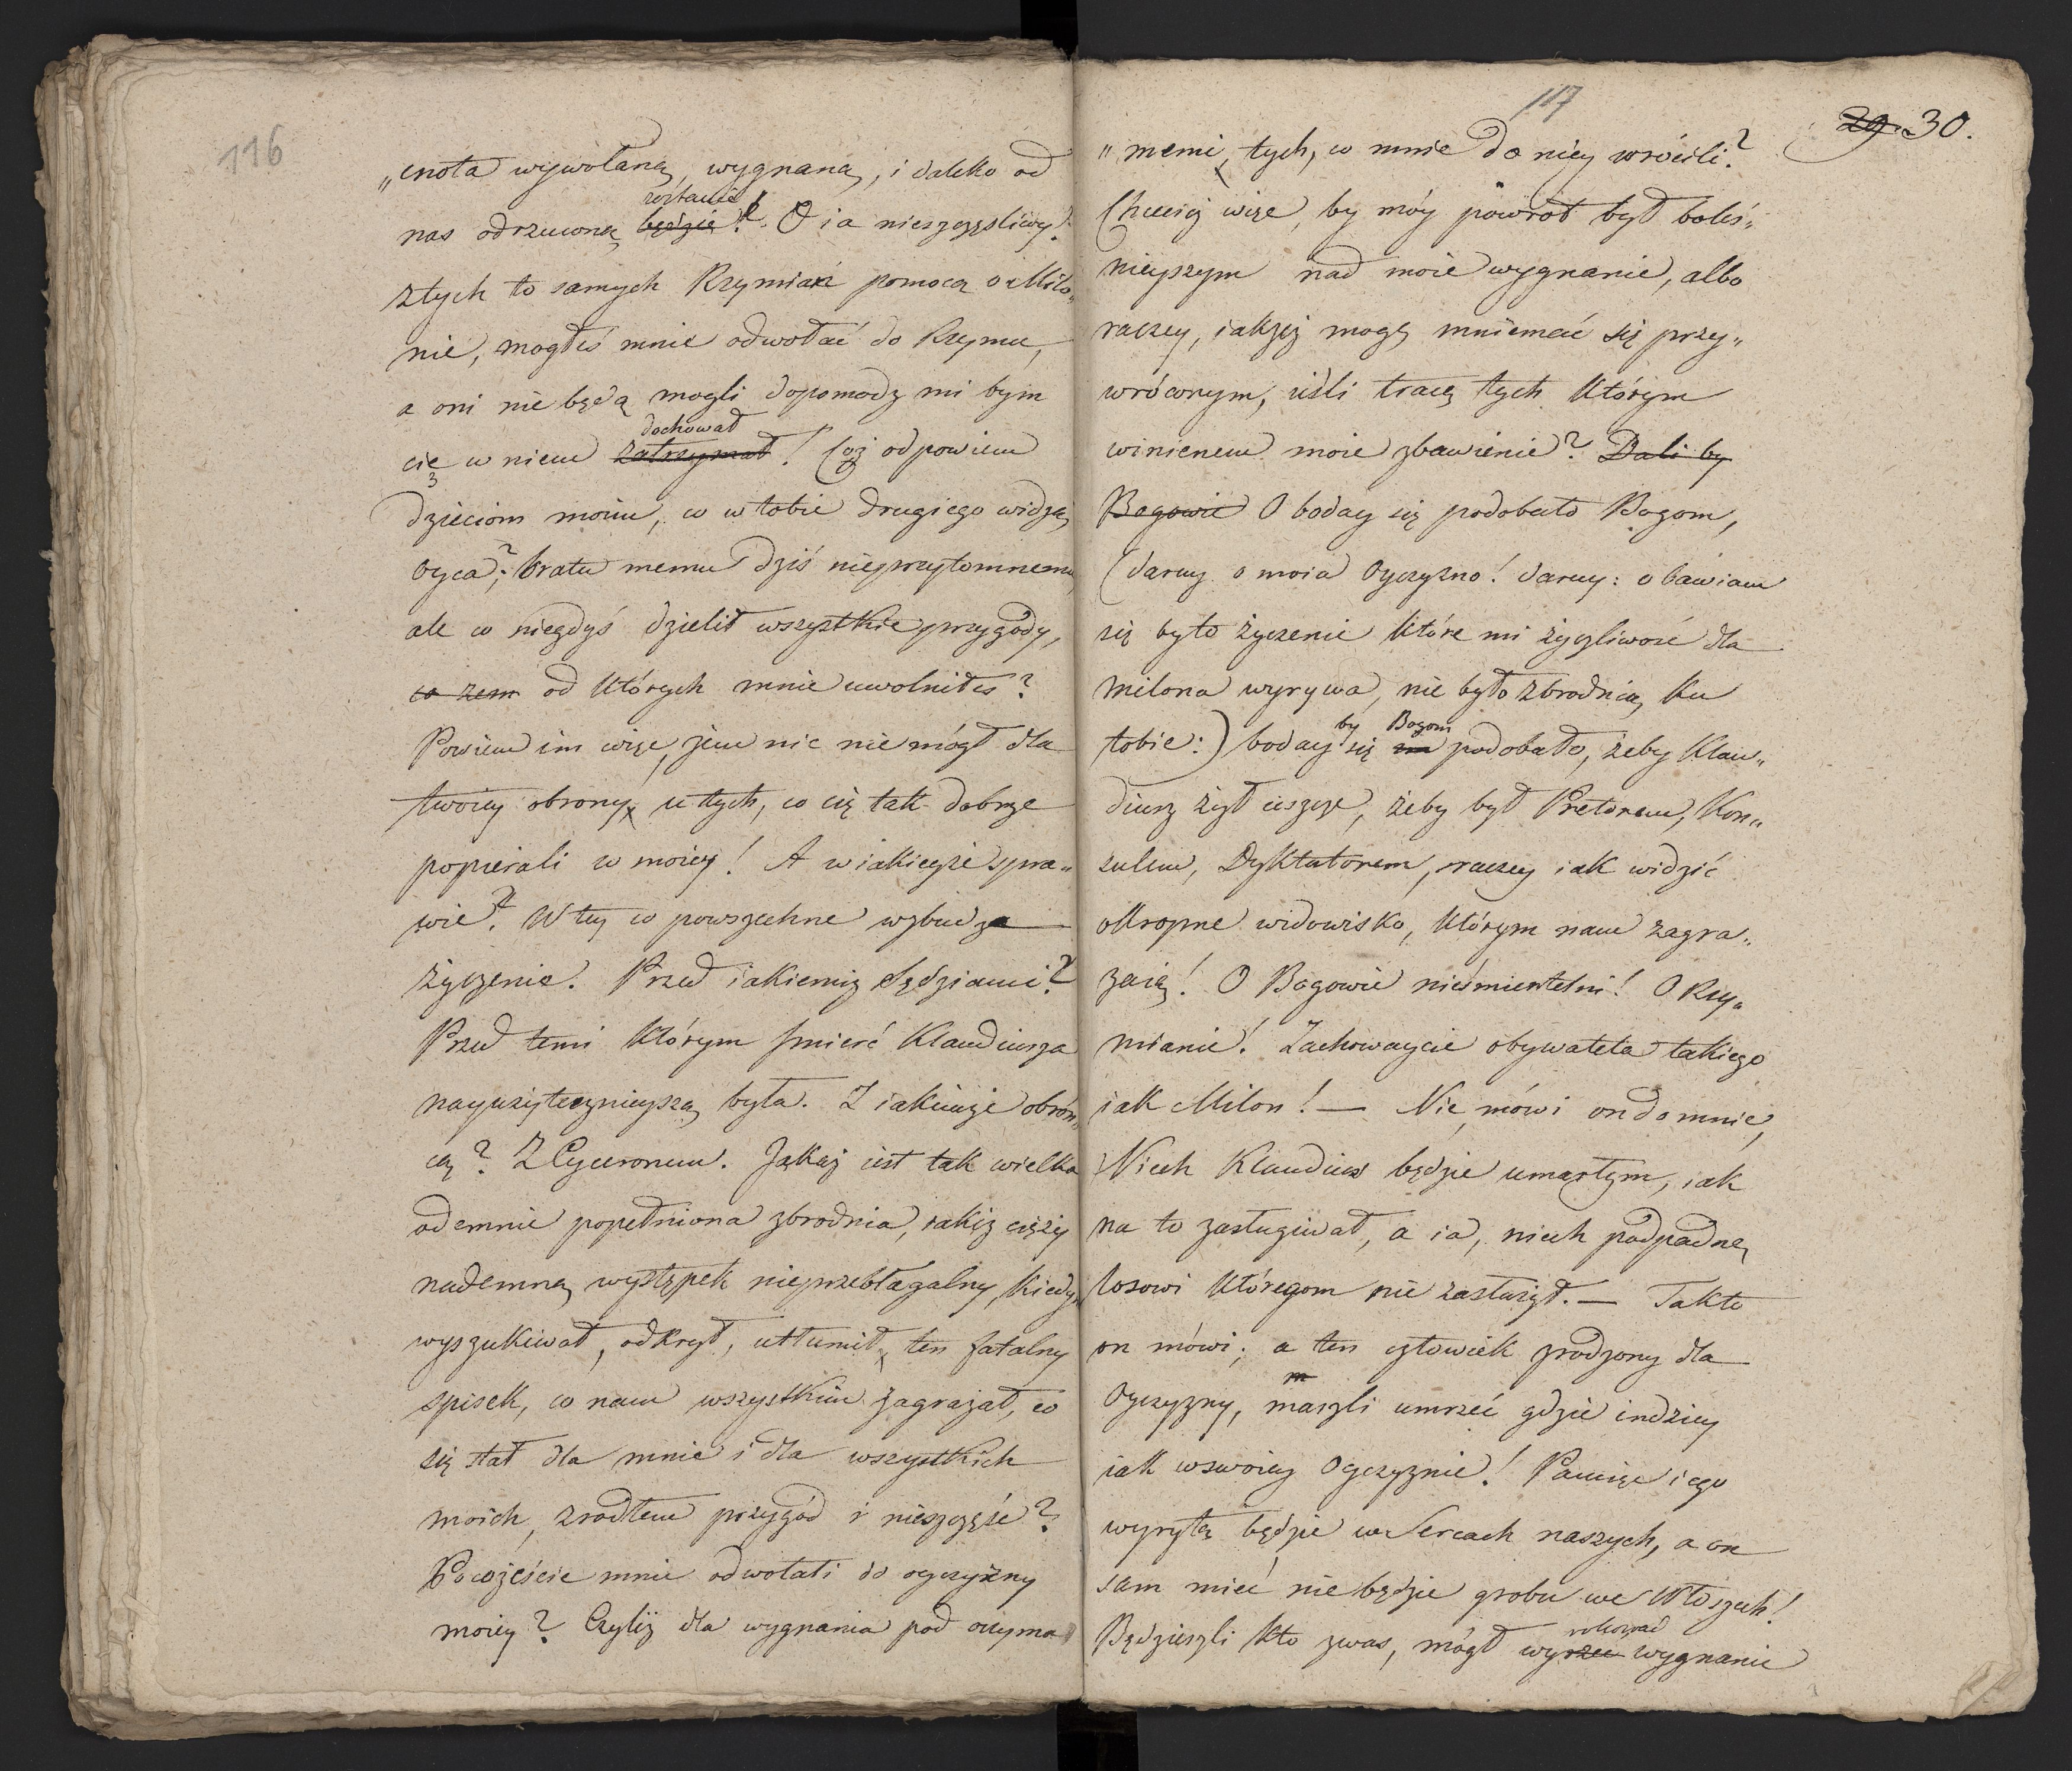 116
„cnota wywołaną, wygnaną, i daleko od
zostanie
nas odrzuconą będzie!. O ia nieszczęśliwy!
ztych to samych Rzymian pomocą o Milo„
nie, mogłeś mnie odwołać do Rzymu,
a oni nie będą mogli dopomodz mi bym
dochował
cię w niem zatrzymał! Coż odpowiem
dzieciom moim, co w tobie drugiego widzą
oyca?; bratu memu dziś nieprzytomnemu
ale co niegdyś dzielił wszystkie przygody,
co zem od których mnie uwolniłes?
Powiem im więc, żem nic nie mógł dla
twoiey obrony, u tych, co cię tak dobrze
popierali w moiey! A w iakieyże spra„
wie? W tey co powszechne wzbudza
życzenie. Przed iakiemiz Sędziami?
Przed temi którym smierć Klaudiusza
nayużytecznieyszą była. Z iakimże obroń„
cą? Z Cyceronem. Jakaż iest tak wielka
odemnie popełniona zbrodnia, iakiż ciąży
nademną występek nieprzebłagalny, kiedym
wyszukiwał, odkrył, utłumił, ten fatalny
spisek, co nam wszystkim zagrażał, co
się stał dla mnie i dla wszystkich
moich, zrodłem przygód i nieszczęść?
Pocożeście mnie odwołali do oyczyzny
moiey? Czyliż dla wygnania pod oczyma
117
29. 30.
„memi, tych, co mnie do niey wrócili?
Chcecież więc, by móy powrót był boleś„
nieyszym nad moie wygnanie, albo
raczey, iakżeż mogę mniemać się przy„
wróconym, ieśli tracę tych którym
winienem moie zbawienie? Dali by
Bogowie O boday się podobało Bogom,
(daruy o moia Oyczyzno! daruy: obawiam
się by to życzenie które mi życzliwość dla
Milona wyrywa, nie było zbrodnią ku
by Bogom
tobie:) boday się im podobało, żeby Klau„
diusz żył ieszcze, żeby był Pretorem, Kon„
sulem, Dyktatorem, raczey iak widzić
okropne widowisko, którym nam zagra„
żaią! O Bogowie nieśmiertelni! O Rzy„
mianie! Zachowaycie obywatela takiego
iak Milon! — Nie, mówi on do mnie,
Niech Klaudiusz będzie umarłym, iak
na to zasługiwał, a ia, niech podpadnę
losowi któregom nie zasłużył. — Takto
on mówi; a ten człowiek zrodzony dla
m
Oyczyzny, maszli umrzeć gdzie indziey
iak wswoiey Oyczyznie! Pamięć iego
wyrytą będzie w Sercach naszych, a on
sam mieć nie będzie grobu we Włoszech!
Będzieszli kto zwas, mógł wyrzec wygnanie